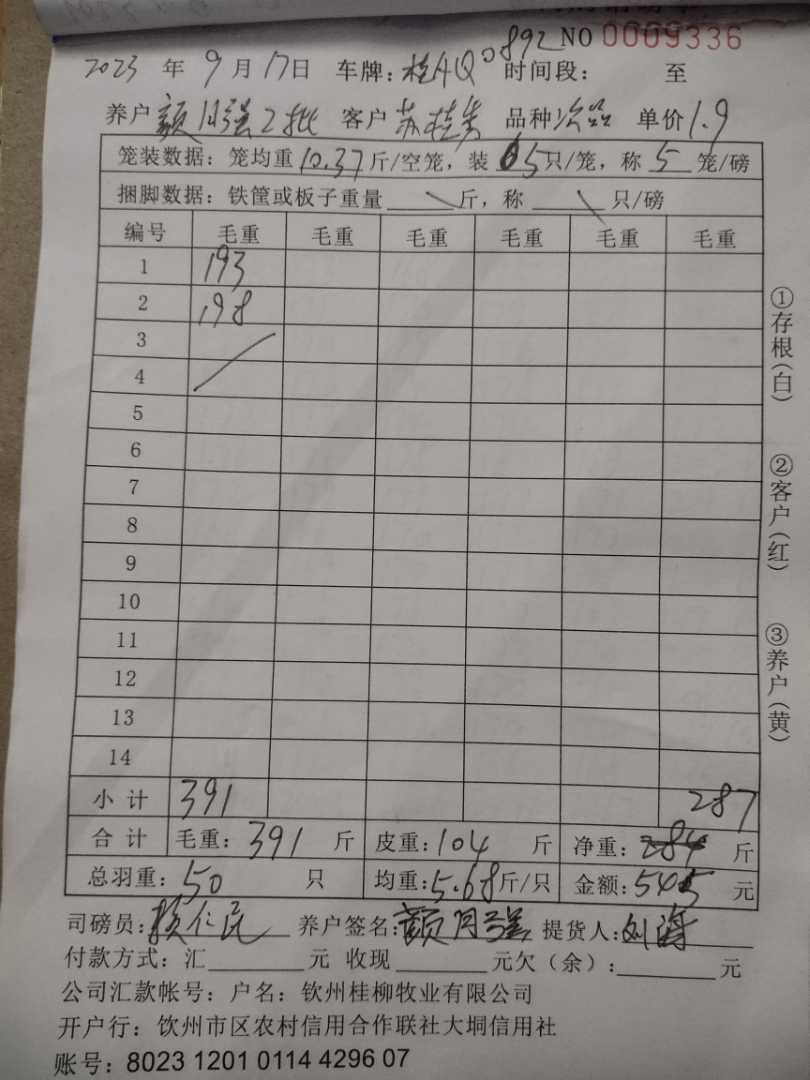 NO 0009336
2023 年 9 月 17 日 车牌: 桂AQ0892 时间段: 至
养户 颜月强2批 客户 苏桂 品种 次品 单价 1.9
笼装数据: 笼均重 10.37 斤/空笼, 装 5 只/笼, 称 5 笼/磅
捆脚数据: 铁筐或板子重量 斤, 称 只/磅
编号 毛重 毛重 毛重 毛重 毛重 毛重
1 193
2 198
3
4
5
6
7
8
9
10
11
12
13
14
小计 391 287
合计 毛重: 391 斤 皮重: 104 斤 净重: 284 斤
总羽重: 50 只 均重: 5.68 斤/只 金额: 545 元
司磅员: 颜仁民 养户签名: 颜月强 提货人: 刘海
付款方式: 汇 元 收现 元欠(余): 元
公司汇款帐号: 户名: 钦州桂柳牧业有限公司
开户行: 饮州市区农村信用合作联社大垌信用社
账号: 8023 1201 0114 4296 07
①存根(白)
②客户(红)
③养户(黄)